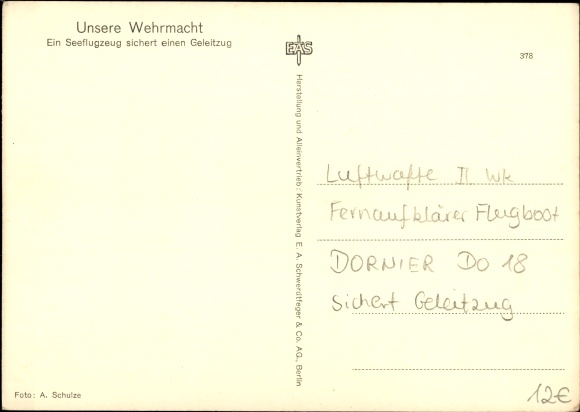 Unsere Wehrmacht
Ein Seeflugzeug sichert einen Geleitzug
EAS
378
Herstellung und Alleinvertrieb: Kunstverlag E. A. Schwerdtfeger & Co. AG., Berlin
Luftwaffe II Wk
Fernaufklärer Flugboot
DORNIER Do 18
sichert Geleitzug
Foto: A. Schulze
12€